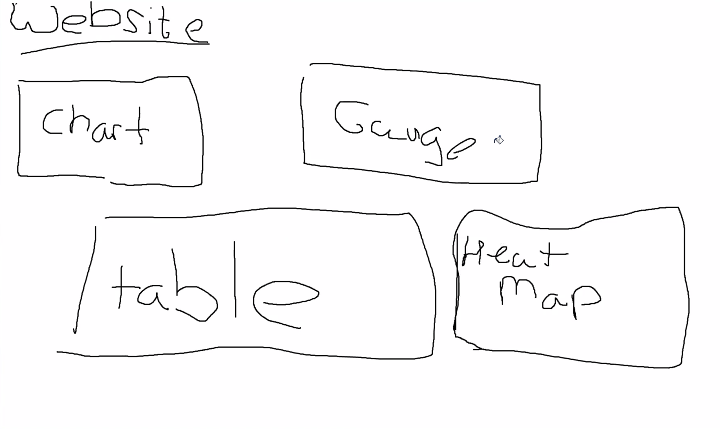 Website
Chart
Gauge
table
Heat
Map